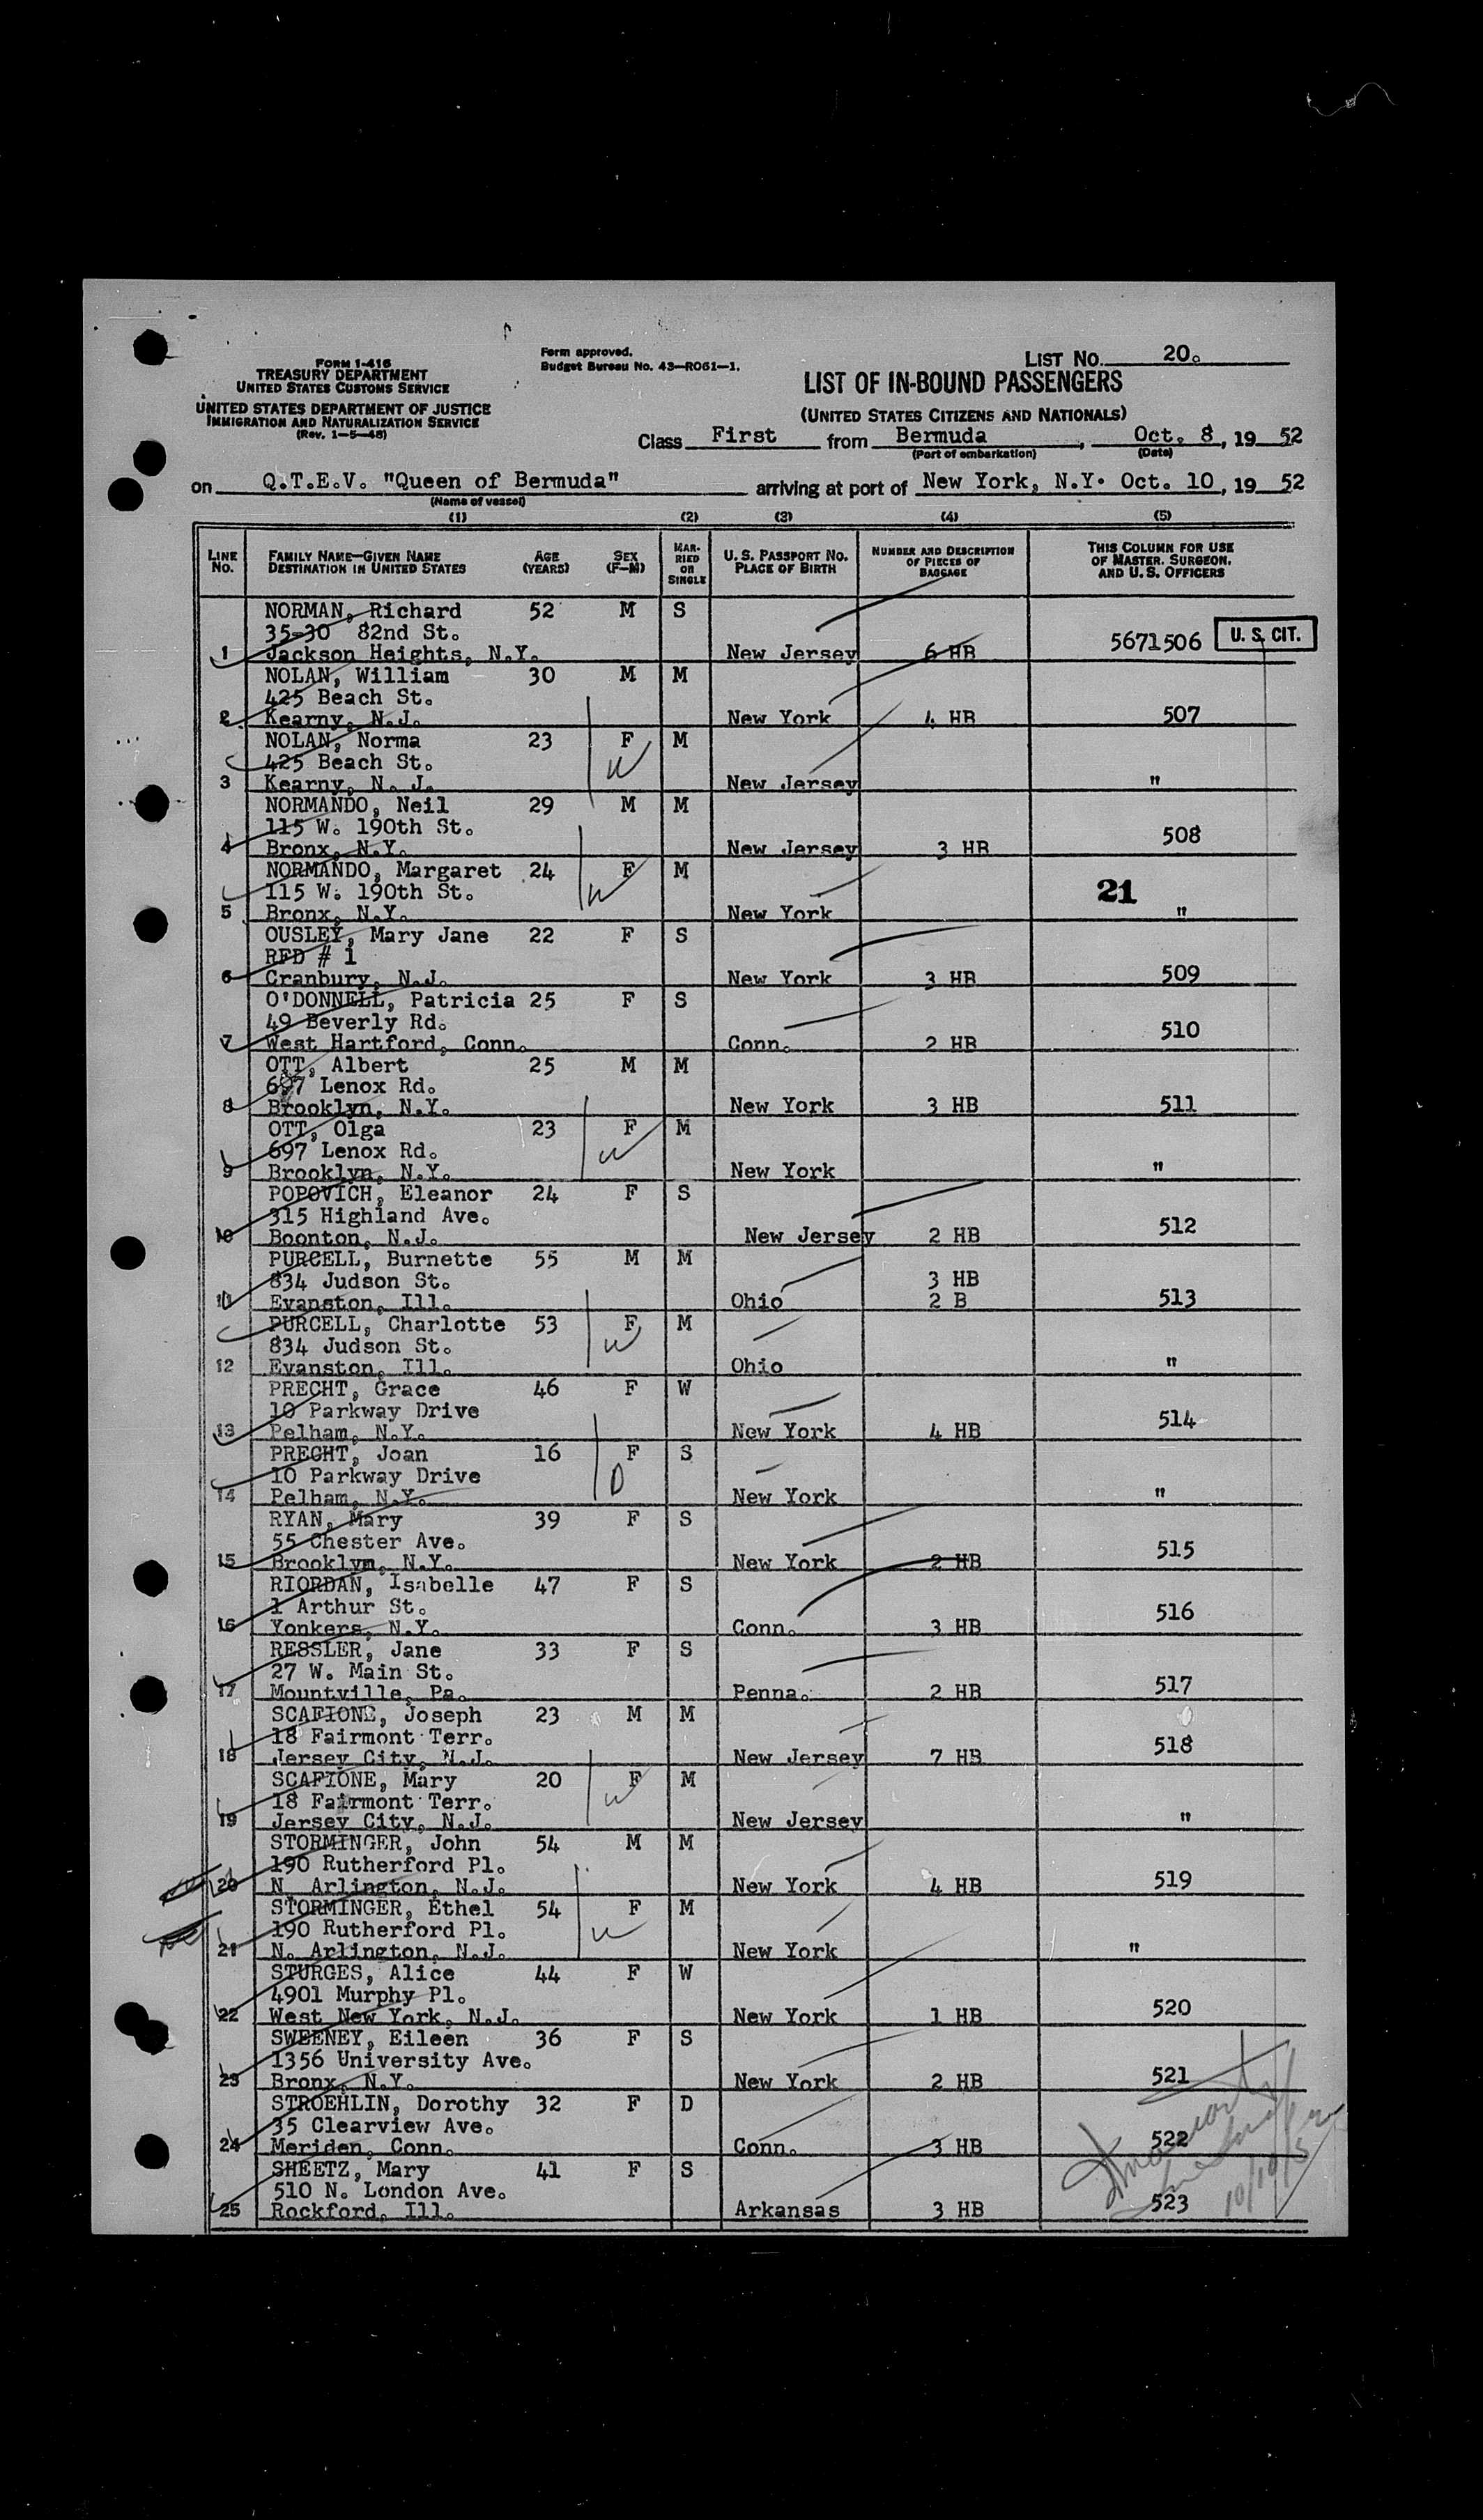 FORM I-416
TREASURY DEPARTMENT
UNITED STATES CUSTOMS SERVICE
UNITED STATES DEPARTMENT OF JUSTICE
IMMIGRATION AND NATURALIZATION SERVICE
(Rev. 1-5-48)
Form approved.
Budget Bureau No. 43-R061-1.
LIST NO. 20.
LIST OF IN-BOUND PASSENGERS
(UNITED STATES CITIZENS AND NATIONALS)
Class First from Bermuda, Oct. 8, 19 52
(Port of embarkation) (Date)
on Q.T.E.V. "Queen of Bermuda" arriving at port of New York, N.Y. Oct. 10, 19 52
(Name of vessel)
(1) (2) (3) (4) (5)
LINE NO. FAMILY NAME—GIVEN NAME DESTINATION IN UNITED STATES AGE (YEARS) SEX (F—M) MARRIED OR SINGLE U. S. PASSPORT NO. PLACE OF BIRTH NUMBER AND DESCRIPTION OF PIECES OF BAGGAGE THIS COLUMN FOR USE OF MASTER, SURGEON, AND U. S. OFFICERS
NORMAN, Richard 52 M S
35-30 82nd St.
1 Jackson Heights, N.Y. New Jersey 6 HB 5671506 U. S. CIT.
NOLAN, William 30 M M
425 Beach St.
2 Kearny, N.J. New York 4 HB 507
NOLAN, Norma 23 F M
425 Beach St. W
3 Kearny, N. J. New Jersey "
NORMANDO, Neil 29 M M
115 W. 190th St.
4 Bronx, N.Y. New Jersey 3 HB 508
NORMANDO, Margaret 24 F M
115 W. 190th St. W 21
5 Bronx, N.Y. New York "
OUSLEY, Mary Jane 22 F S
RFD # 1
6 Cranbury, N.J. New York 3 HB 509
O'DONNELL, Patricia 25 F S
49 Beverly Rd.
7 West Hartford, Conn. Conn. 2 HB 510
OTT, Albert 25 M M
697 Lenox Rd.
8 Brooklyn, N.Y. New York 3 HB 511
OTT, Olga 23 F M
697 Lenox Rd. W
9 Brooklyn, N.Y. New York "
POPOVICH, Eleanor 24 F S
315 Highland Ave.
10 Boonton, N.J. New Jersey 2 HB 512
PURCELL, Burnette 55 M M
834 Judson St. 3 HB
11 Evanston, Ill. Ohio 2 B 513
PURCELL, Charlotte 53 F M
834 Judson St. W
12 Evanston, Ill. Ohio "
PRECHT, Grace 46 F W
10 Parkway Drive
13 Pelham, N.Y. New York 4 HB 514
PRECHT, Joan 16 F S
10 Parkway Drive D
14 Pelham, N.Y. New York "
RYAN, Mary 39 F S
55 Chester Ave.
15 Brooklyn, N.Y. New York 2 HB 515
RIORDAN, Isabelle 47 F S
1 Arthur St.
16 Yonkers, N.Y. Conn. 3 HB 516
RESSLER, Jane 33 F S
27 W. Main St.
17 Mountville, Pa. Penna. 2 HB 517
SCAFIONE, Joseph 23 M M
18 Fairmont Terr.
18 Jersey City, N.J. New Jersey 7 HB 518
SCAFIONE, Mary 20 F M
18 Fairmont Terr. W
19 Jersey City, N.J. New Jersey "
STORMINGER, John 54 M M
190 Rutherford Pl.
20 N. Arlington, N.J. New York 4 HB 519
STORMINGER, Ethel 54 F M
190 Rutherford Pl. W
21 N. Arlington, N.J. New York "
STURGES, Alice 44 F W
4901 Murphy Pl.
22 West New York, N.J. New York 1 HB 520
SWEENEY, Eileen 36 F S
1356 University Ave.
23 Bronx, N.Y. New York 2 HB 521
STROEHLIN, Dorothy 32 F D
35 Clearview Ave.
24 Meriden, Conn. Conn. 3 HB 522
SHEETZ, Mary 41 F S
510 N. London Ave.
25 Rockford, Ill. Arkansas 3 HB 523